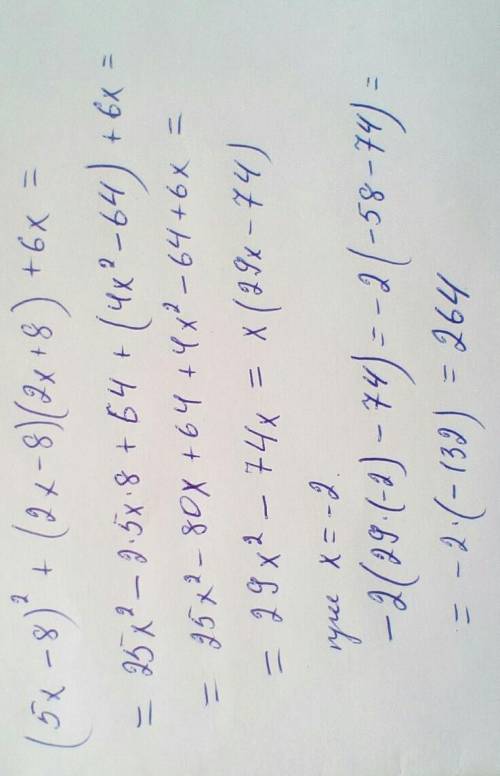 (5x-8)² + (2x-8)(2x+8) + 6x =
= 25x² - 2·5x·8 + 64 + (4x² - 64) + 6x =
= 25x² - 80x + 64 + 4x² - 64 + 6x =
= 29x² - 74x = x(29x - 74)
при x = -2.
-2(29·(-2) - 74) = -2(-58 - 74) =
= -2·(-132) = 264